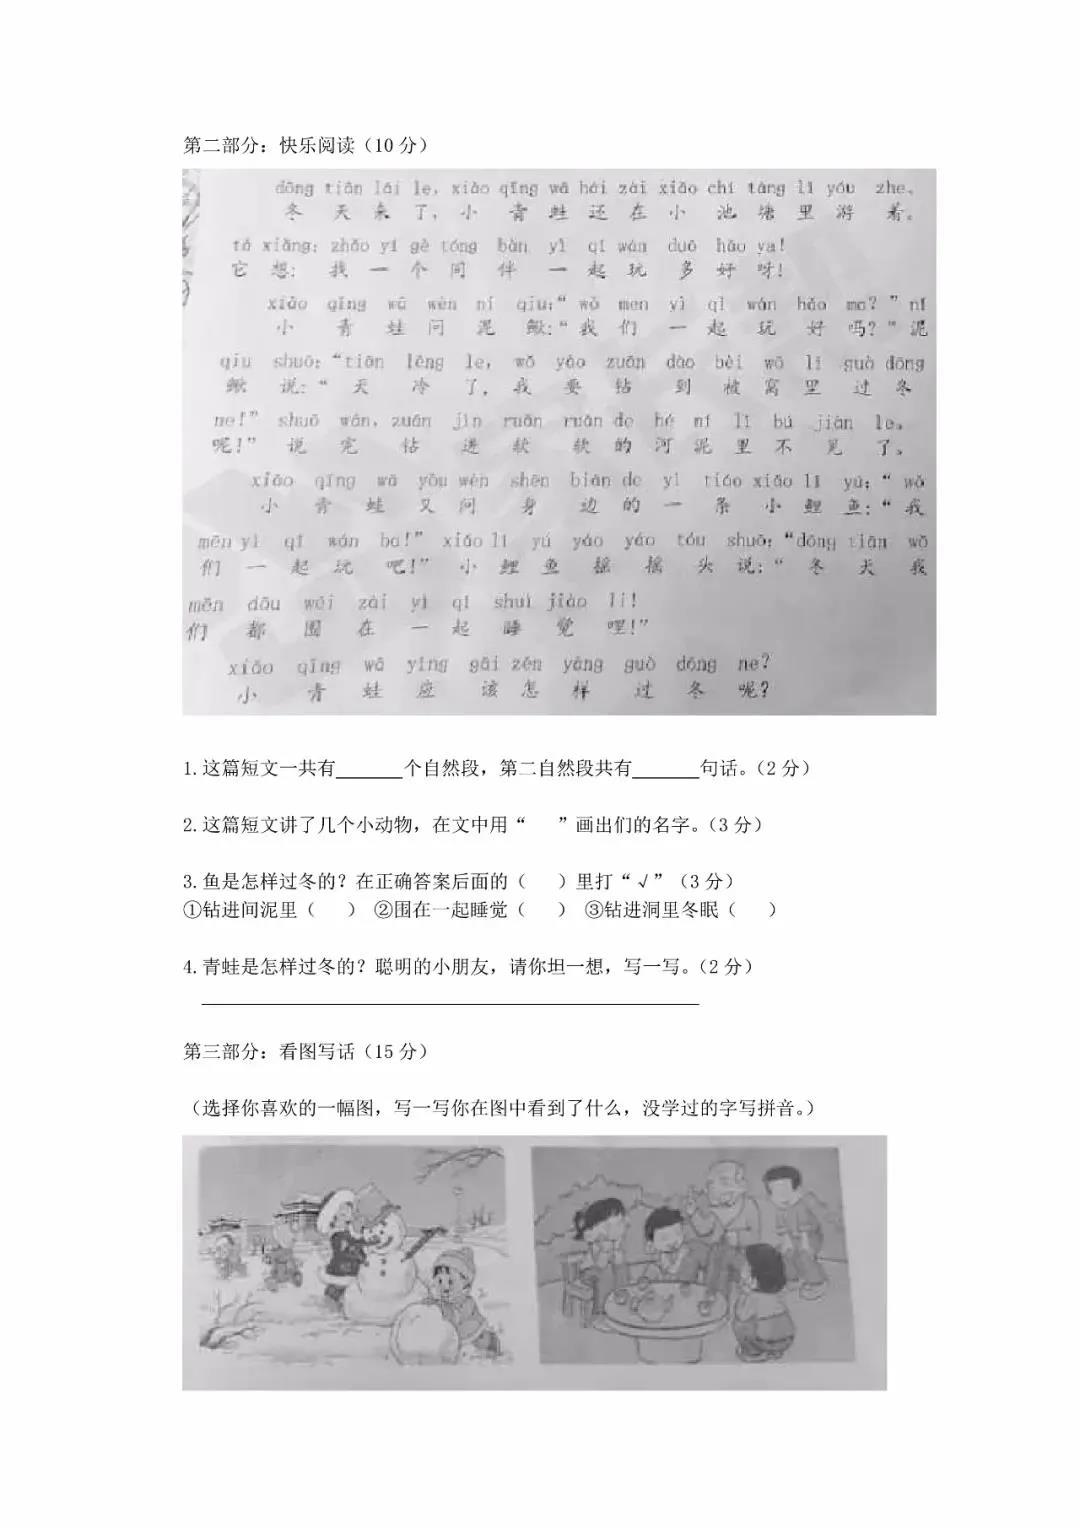 第二部分：快乐阅读（10 分）
dōng tiān lái le，xiǎo qīng wā hái zài xiǎo chí táng lǐ yóu zhe。
冬 天 来 了，小 青 蛙 还 在 小 池 塘 里 游 着。
tā xiǎng：zhǎo yí gè tóng bàn yì qǐ wán duō hǎo ya！
它 想：找 一 个 同 伴 一 起 玩 多 好 呀！
xiǎo qīng wā wèn ní qiu：“wǒ men yì qǐ wán hǎo ma？”ní
小 青 蛙 问 泥 鳅：“我 们 一 起 玩 好 吗？”泥
qiu shuō：“tiān lěng le，wǒ yào zuān dào bèi wō lǐ guò dōng
鳅 说：“天 冷 了，我 要 钻 到 被 窝 里 过 冬
ne！”shuō wán，zuān jìn ruǎn ruǎn de hé ní lǐ bú jiàn le。
呢！”说 完 钻 进 软 软 的 河 泥 里 不 见 了。
xiǎo qīng wā yòu wèn shēn biān de yì tiáo xiǎo lǐ yú：“wǒ
小 青 蛙 又 问 身 边 的 一 条 小 鲤 鱼：“我
mēn yì qǐ wán ba！”xiǎo lǐ yú yáo yáo tóu shuō：“dōng tiān wǒ
们 一 起 玩 吧！”小 鲤 鱼 摇 摇 头 说：“冬 天 我
mēn dōu wéi zài yì qǐ shuì jiào li！
们 都 围 在 一 起 睡 觉 哩！”
xiǎo qīng wā yīng gāi zěn yàng guò dōng ne？
小 青 蛙 应 该 怎 样 过 冬 呢？
1.这篇短文一共有_______个自然段，第二自然段共有_______句话。（2 分）
2.这篇短文讲了几个小动物，在文中用“   ”画出们的名字。（3 分）
3.鱼是怎样过冬的？在正确答案后面的（   ）里打“√”（3 分）
①钻进间泥里（   ） ②围在一起睡觉（   ） ③钻进洞里冬眠（   ）
4.青蛙是怎样过冬的？聪明的小朋友，请你坦一想，写一写。（2 分）
第三部分：看图写话（15 分）
（选择你喜欢的一幅图，写一写你在图中看到了什么，没学过的字写拼音。）